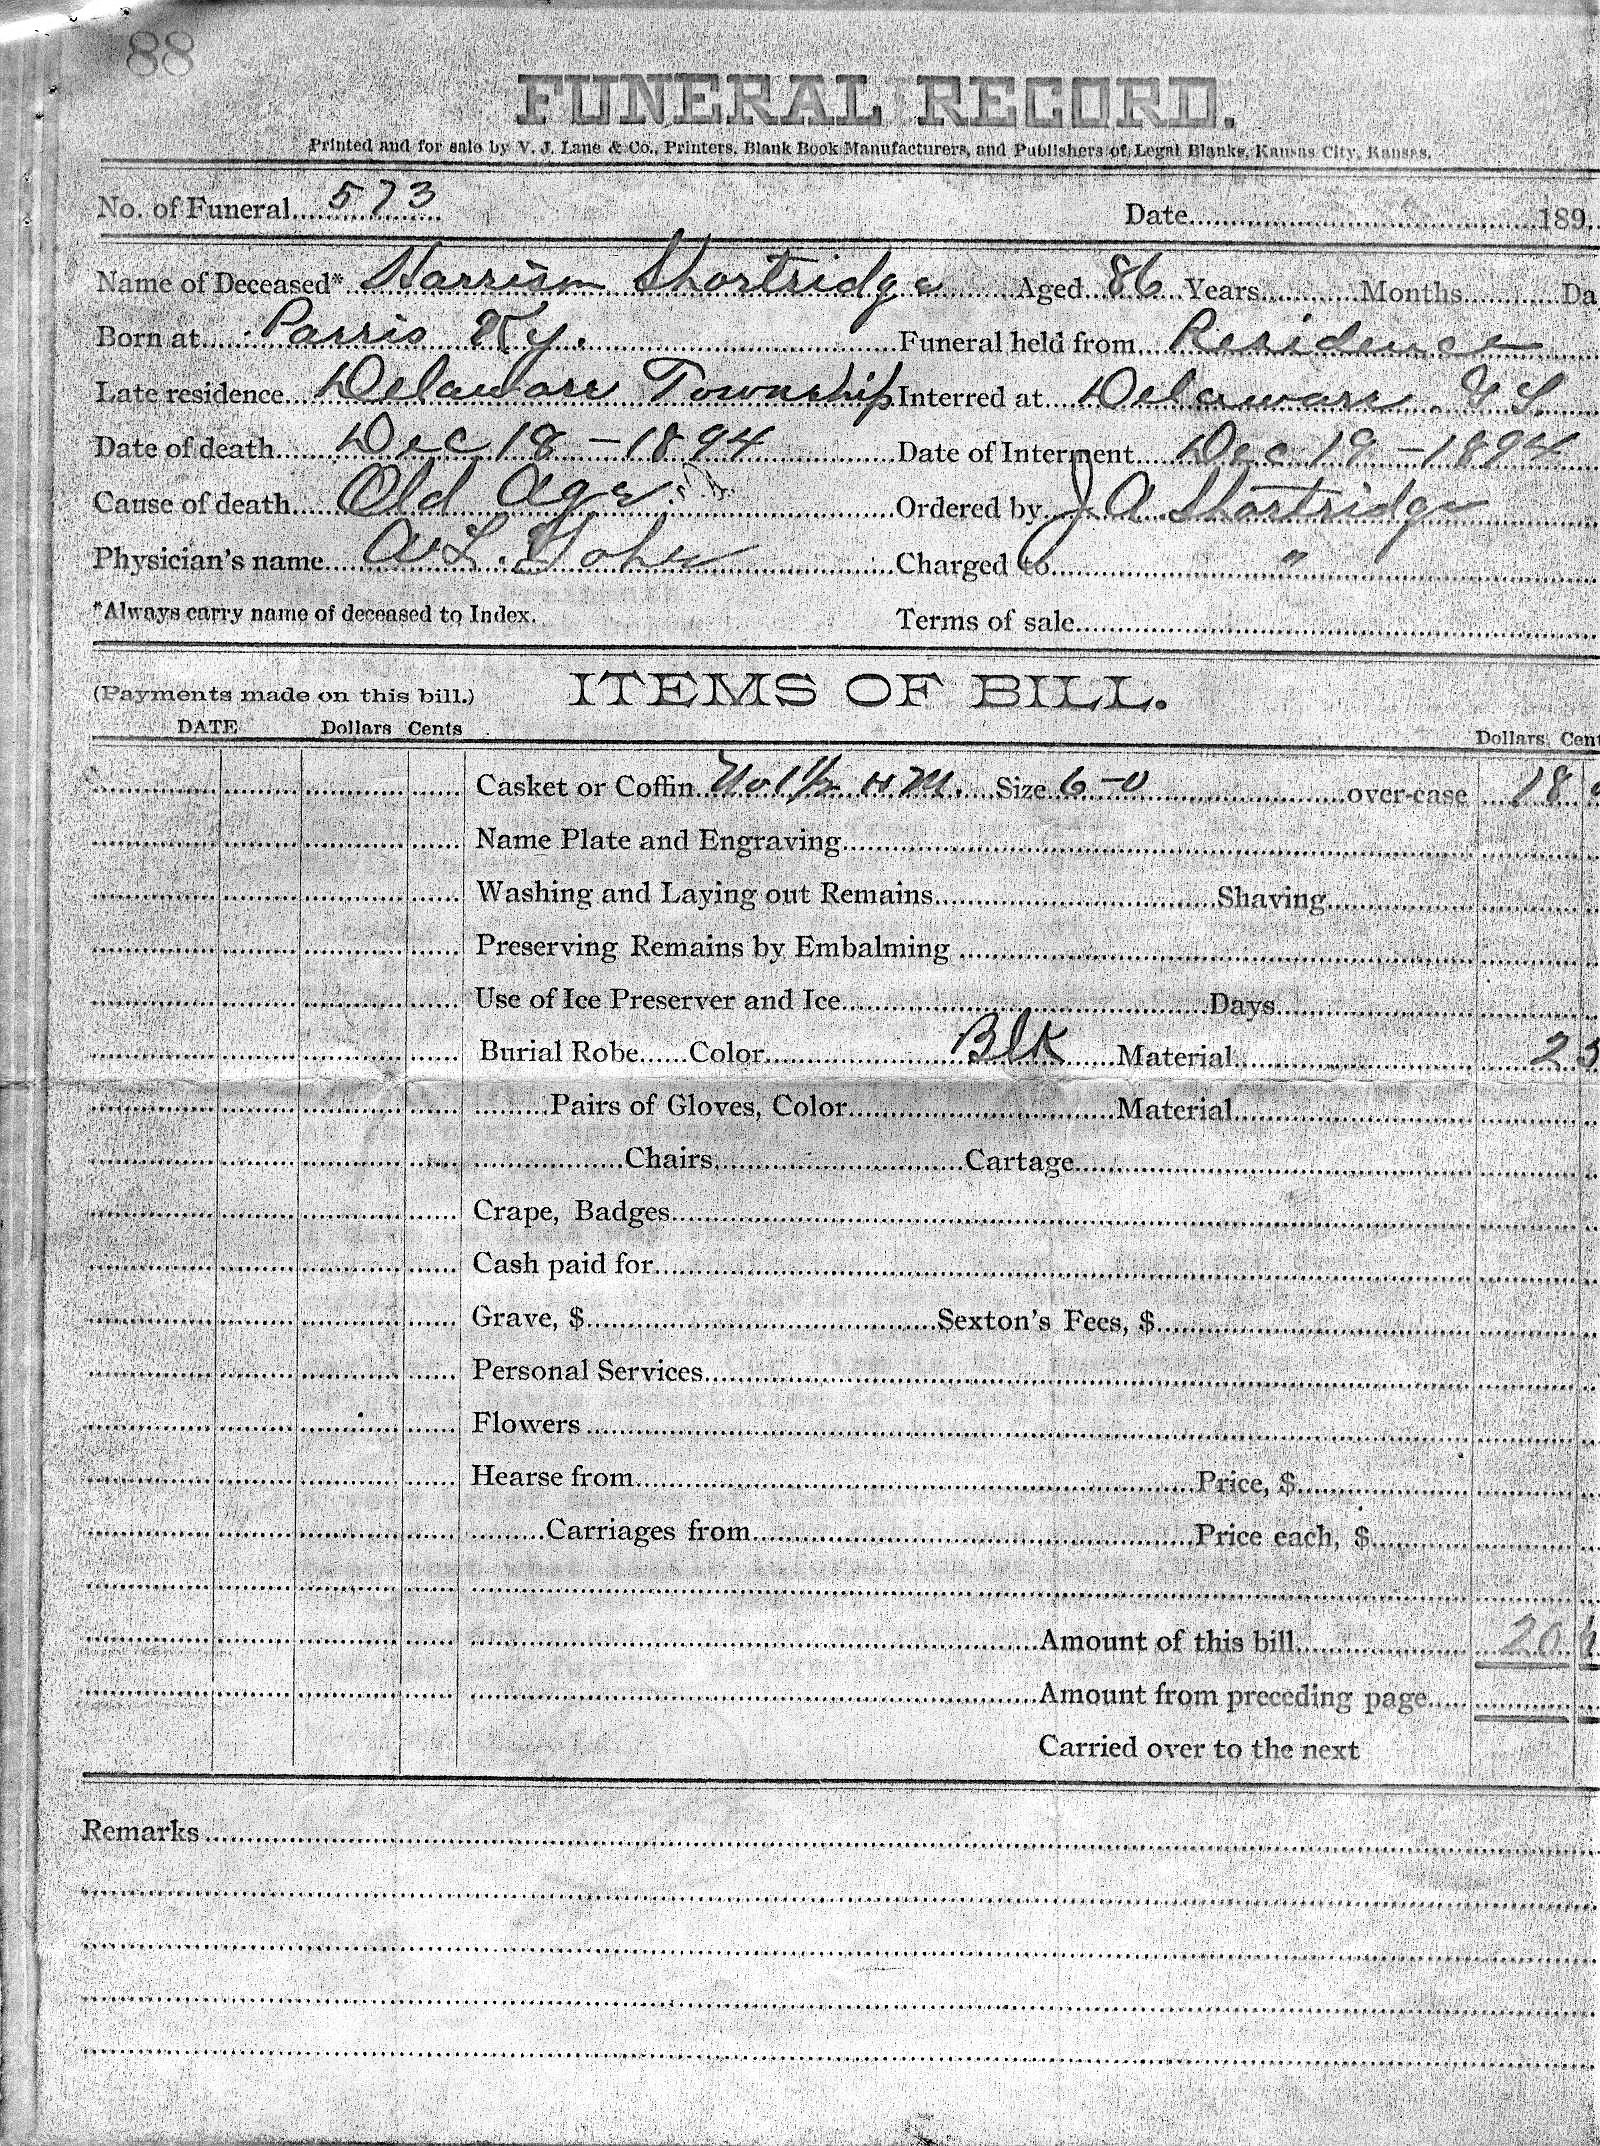 88
FUNERAL RECORD.
Printed and for sale by V. J. Lane & Co., Printers, Blank Book Manufacturers, and Publishers of Legal Blanks, Kansas City, Kansas.
No. of Funeral 573 Date 189
Name of Deceased* Harrison Shortridge Aged 86 Years Months Da
Born at Parris Ky. Funeral held from Residence
Late residence Delaware Township Interred at Delaware
Date of death Dec 18 - 1894 Date of Interment Dec 19 - 1894
Cause of death Old Age Ordered by J A Shortridge
Physician's name Charged to "
*Always carry name of deceased to Index. Terms of sale
(Payments made on this bill.) ITEMS OF BILL.
DATE Dollars Cents Dollars Cent
Casket or Coffin No 1½ H M. Size 6-0 over-case 18
Name Plate and Engraving
Washing and Laying out Remains Shaving
Preserving Remains by Embalming
Use of Ice Preserver and Ice Days
Burial Robe Color Blk Material 2 5
Pairs of Gloves, Color Material
Chairs Cartage
Crape, Badges
Cash paid for
Grave, $ Sexton's Fees, $
Personal Services
Flowers
Hearse from Price, $
Carriages from Price each, $
Amount of this bill 20
Amount from preceding page
Carried over to the next
Remarks